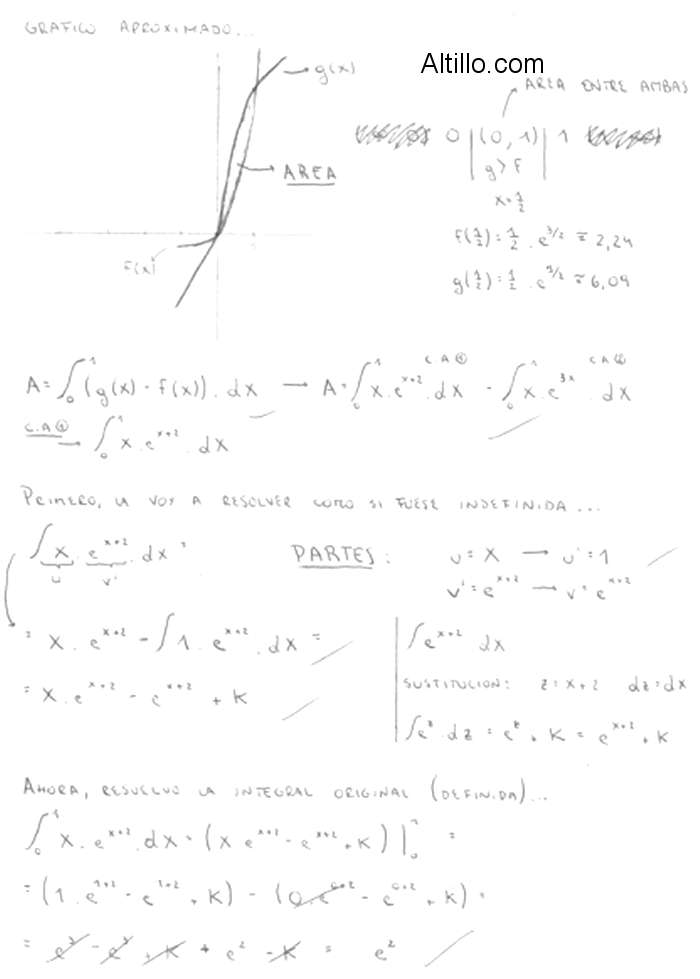 GRAFICO APROXIMADO...
Altillo.com
AREA ENTRE AMBAS
g(x)
0 | (0, 1) | 1
g > f
AREA
x = 1/2
f(x)
f(1/2) = 1/2 . e^(3/2) ≅ 2,24
g(1/2) = 1/2 . e^(5/2) ≅ 6,09
C.A① C.A②
A = ∫₀¹ (g(x) - f(x)) . dx → A = ∫₀¹ x . e^(x+2) . dx - ∫₀¹ x . e^(3x) . dx
C.A① → ∫₀¹ x . e^(x+2) . dx
PRIMERO, LA VOY A RESOLVER COMO SI FUESE INDEFINIDA...
∫ x . e^(x+2) . dx =
u v'
PARTES: u = x → u' = 1
v' = e^(x+2) → v = e^(x+2)
= x . e^(x+2) - ∫ 1 . e^(x+2) . dx =
= x . e^(x+2) - e^(x+2) + K
∫ e^(x+2) dx
SUSTITUCION: z = x+2 dz = dx
∫ e^z . dz = e^z + K = e^(x+2) + K
AHORA, RESUELVO LA INTEGRAL ORIGINAL (DEFINIDA)...
∫₀¹ x . e^(x+2) . dx = (x e^(x+2) - e^(x+2) + K) |₀¹ =
= (1 . e^(1+2) - e^(1+2) + K) - (0 . e^(0+2) - e^(0+2) + K) =
= e³ - e³ + K + e² - K = e²